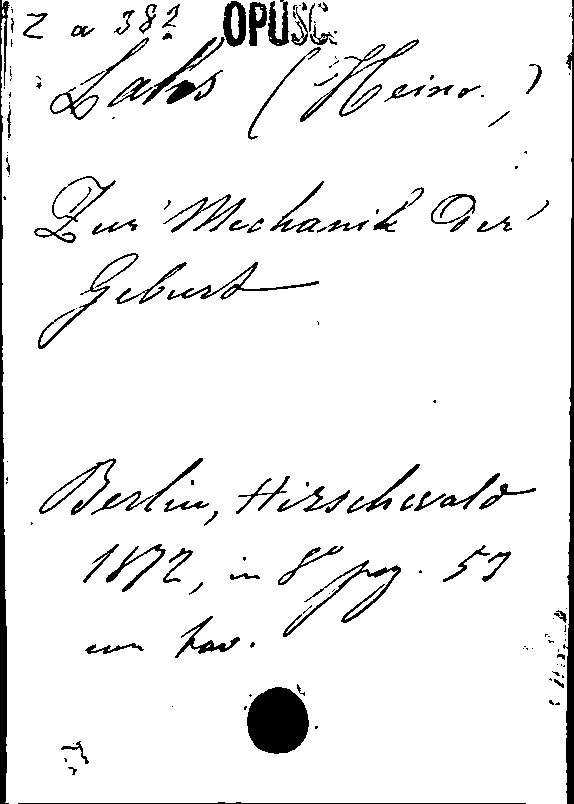 Z a 382 OPUSC.
Lahs (Heinr.)
Zur Mechanik der
Geburt
Berlin, Hirschwald
1872, in 8° pag. 53
con tav.